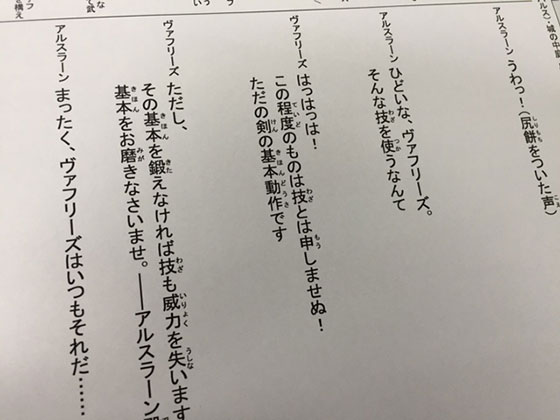 アルスラーン うわっ!(尻餅をついた声)
アルスラーン ひどいな、ヴァフリーズ。
そんな技を使うなんて
ヴァフリーズ はっはっは!
この程度のものは技とは申しませぬ!
ただの剣の基本動作です
ヴァフリーズ ただし、
その基本を鍛えなければ技も威力を失います
基本をお磨きなさいませ。――アルスラーン
アルスラーン まったく、ヴァフリーズはいつもそれだ……